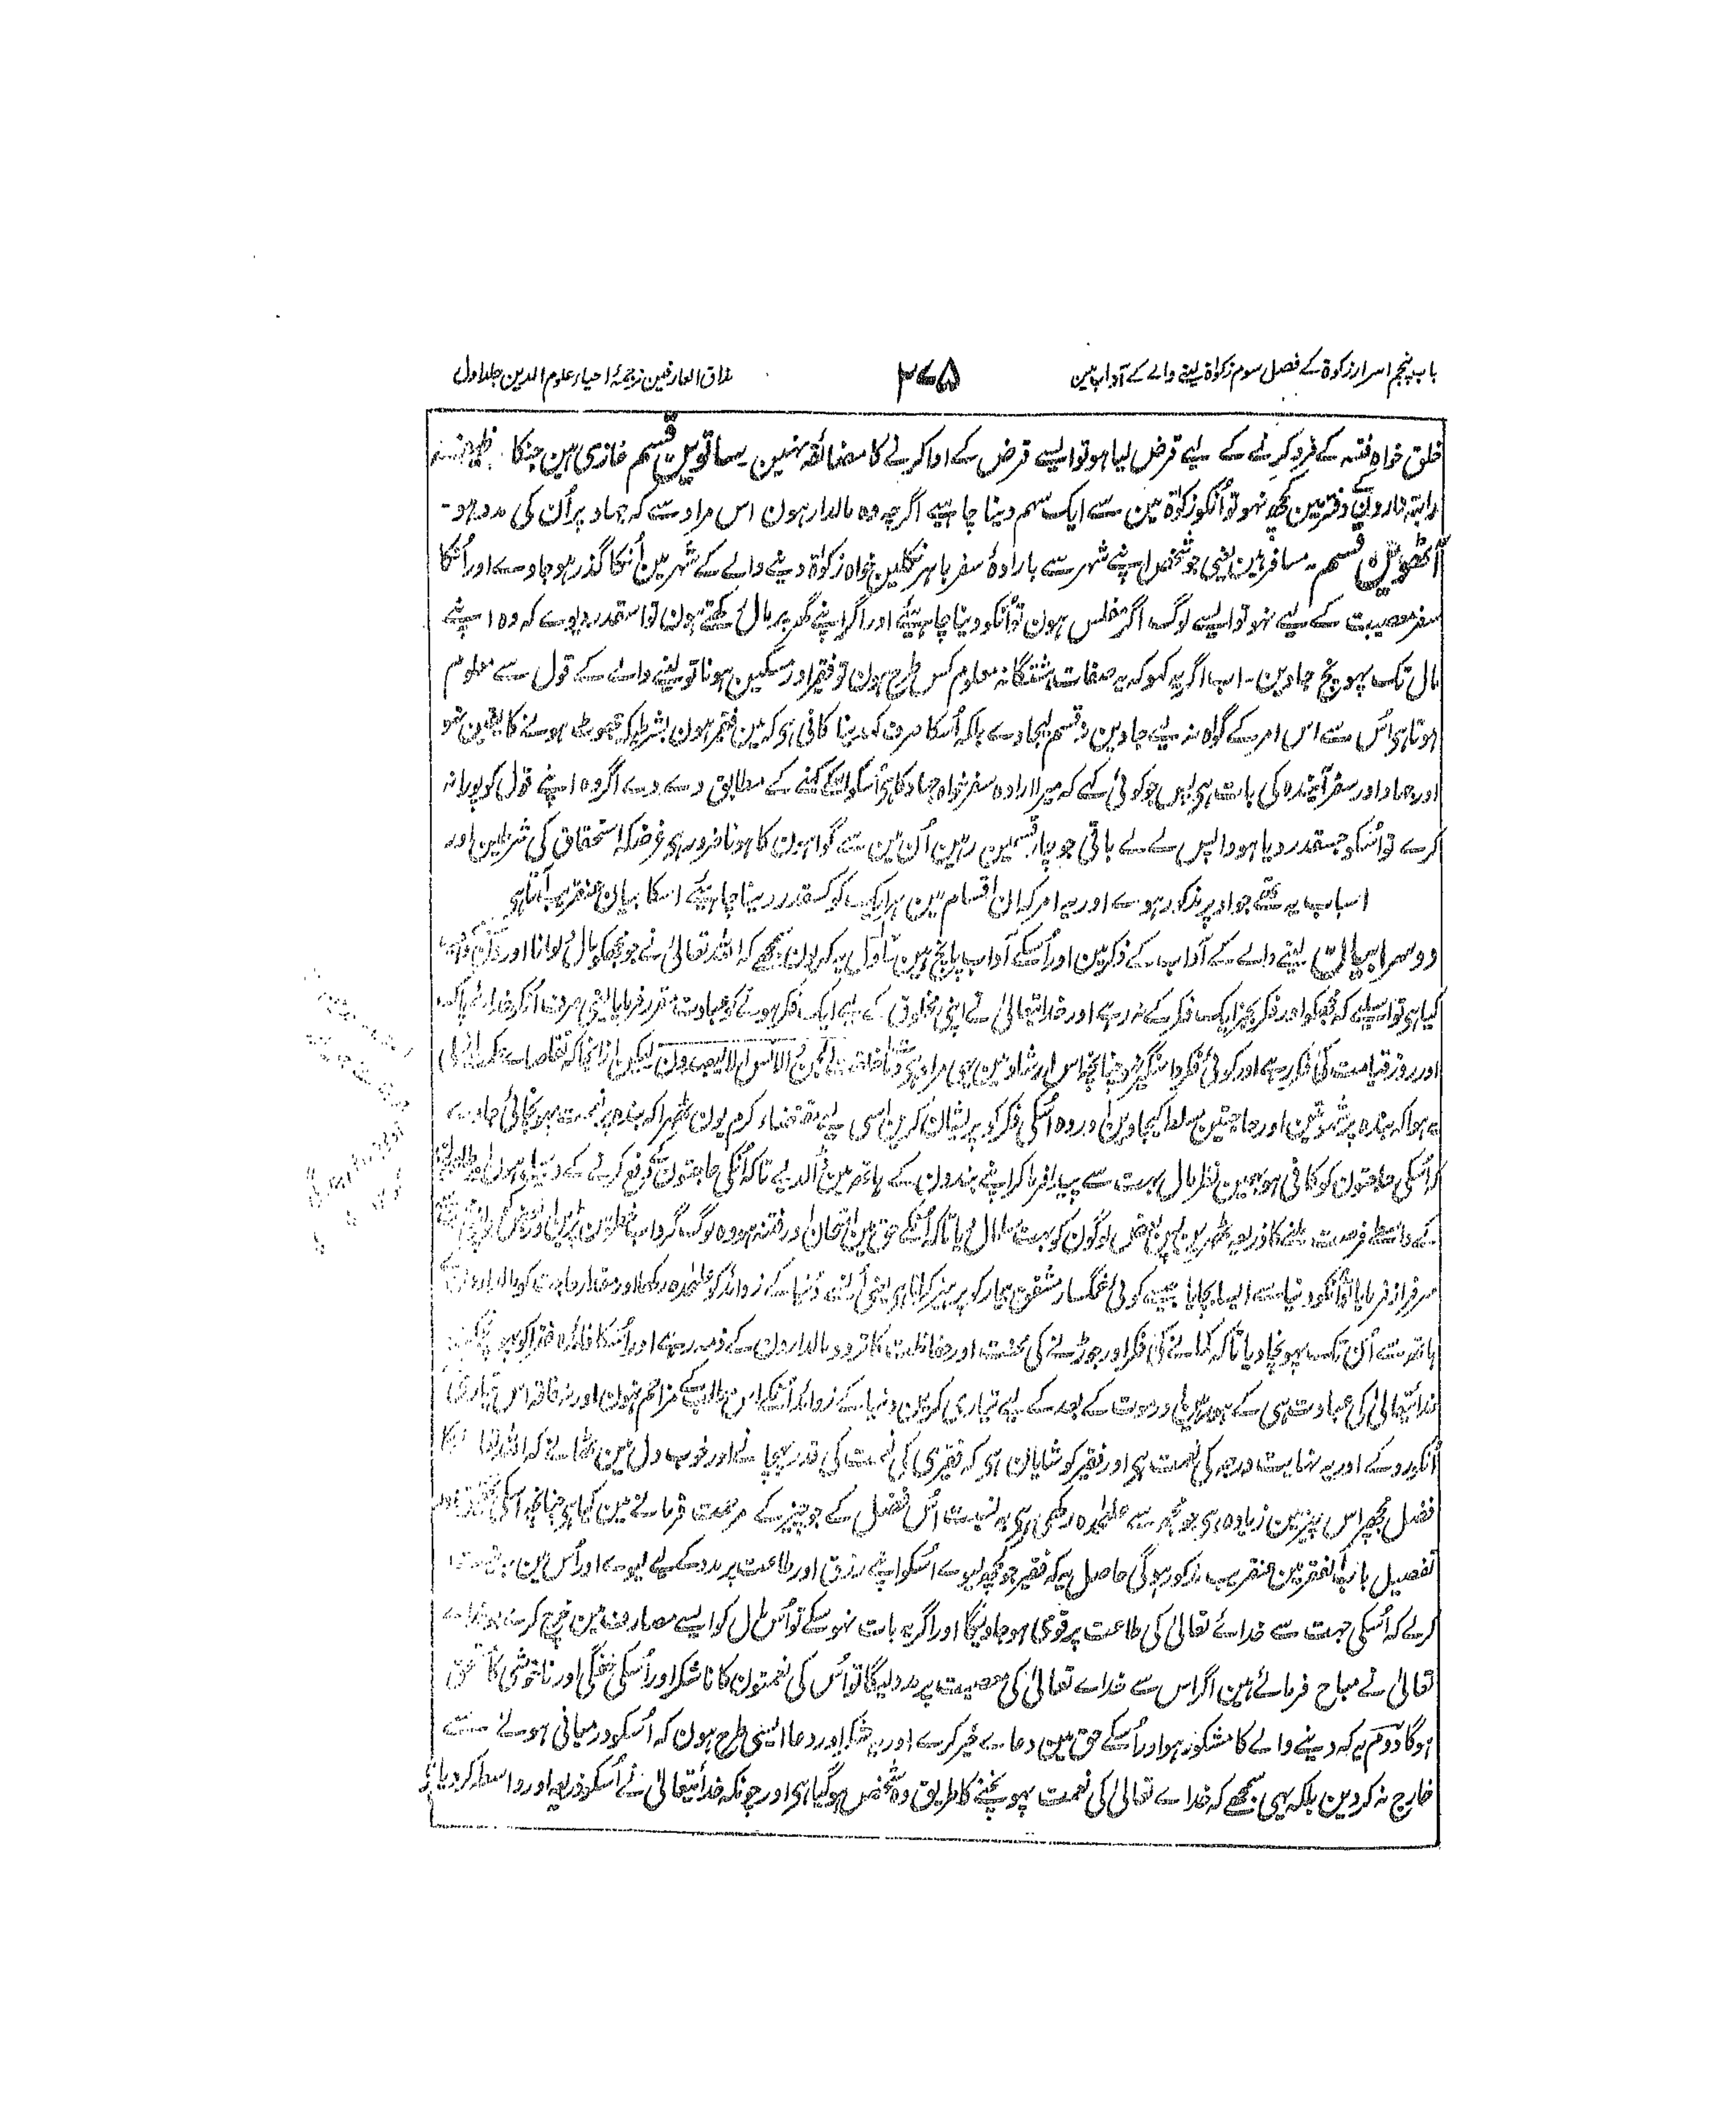 باب پنجم اسرار زکوۃ کے فصل سوم زکوٰۃ لینے والے کے آداب مین
۲۷۵
مذاق العارفین ترجمۂ احیاء علوم الدین جلد اول
خلق خواہ فتنہ کے فرو کرنے کے لیے قرض لیا ہو تو ایسے قرض کے ادا کرنے کا مضائقہ نہین ساتوین قسم غازی ہین جنکا
راتبہ خوارون کے دفتر مین کچھ نہو تو اُنکو زکوٰۃ مین سے ایک سہم دینا چاہیے اگرچہ وہ مالدار ہون اس مراد سے کہ جہاد پر اُن کی مدد ہو۔
آٹھوین قسم ۔ مسافر ہین یعنی جو شخص اپنے شہر سے بارادۂ سفر باہر نکلین خواہ زکوٰۃ دینے والے کے شہر مین اُنکا گذر ہو جاوے اور اُنکا
سفر معصیت کے لیے نہو تو ایسے لوگ اگر مفلس ہون تو اُنکو دینا چاہیے اور اگر اپنے گھر پر مال رکھتے ہون تو اسقدر دیوے کہ وہ اپنے
مال تک پہونچ جاوین ۔ اب اگر یہ کہو کہ یہ صفات ہشتگانہ معلوم کس طرح ہون تو فقیر اور مسکین ہونا تو لینے والے کے قول سے معلوم
ہوتا ہی اُس سے اس امر کے گواہ نہ لیے جاوین نہ قسم لیجاوے بلکہ اُسکا صرف کہدینا کافی ہی کہ مین فقیر ہون بشرطیکہ جھوٹ ہونے کا یقین نہو
اور جہاد اور سفر آیندہ کی بات ہی پس جو کوئی کہے کہ میرا ارادہ سفر خواہ جہاد کا ہی اُسکو اُسکے کہنے کے مطابق دے دے اگر وہ اپنے قول کو پورا نہ
کرے تو اُسکو جسقدر دیا ہو واپس لے لے باقی جو چار قسمین رہین اُن مین سے گواہون کا ہونا ضرور ہی غرضکہ استحقاق کی شرطین اور
اسباب یہ تھے جو اوپر مذکور ہوے اور یہ امر کہ ان اقسام مین ہر ایک کو کسقدر دینا چاہیے اسکا بیان عنقریب آتا ہی
دوسرا بیان لینے والے کے آداب کے ذکر مین اور اُسکے آداب پانچ ہین اول یہ کہ یون سمجھے کہ اللہ تعالیٰ نے جو مجھکو مال دلوانا اورون پر
کیا ہی تو اسلیے کہ مجھکو اور فکر بجز ایک فکر کے نہ رہے اور خدا تعالیٰ نے اپنی مخلوق کے لیے ایک فکر ہونے کو عبادت مقرر فرمایا یعنی صرف اُنکو خدائے پاک
اور روز قیامت کی فکر رہے اور کوئی فکر دامنگیر نہو چنانچہ اس ارشاد مین یہی مراد ہی وَمَا خَلَقْتُ الْجِنَّ وَالْاِنْسَ اِلَّا لِیَعْبُدُون لیکن ازانجا کہ
یہ ہوا کہ بندہ پر شہوتین اور حاجتین مسلط کیجاوین اور وہ اُسکی فکر کو پریشان کرین اسی لیے بمقتضاء کرم یون ٹھہرا کہ بندہ پر نعمت پہونچائی جاوے
کہ اُسکی حاجتون کو کافی ہو بدین نظر مال بہت سے پیدا فرما کر اپنے بندون کے ہاتھ مین ڈالدیے تاکہ اُنکی حاجتون کے رفع کرنے کے
کے واسطے فرصت ملنے کا ذریعہ ٹھہرین پس بعض لوگون کو بہت سا مال دیا تاکہ اُنکے حق مین امتحان اور فتنہ ہو وہ لوگ گرداب خطر مین پڑین اور
سرفراز فرمایا تو اُنکو دنیا سے ایسا بچایا جیسے کوئی غمگسار مشفق بیمار کو پرہیز کراتا ہی یعنی اُنسے دنیا کے زوائد کو علیٰحدہ رکھا اور مقدار حاجت کو مالدارون کے
ہاتھ سے اُن تک پہونچا دیا تاکہ کمانے کی فکر اور جوڑنے کی محنت اور حفاظت کا تردد مالدارون کے ذمہ رہے اور اُسکا فائدہ فقرا کو پہونچے
خدا تعالیٰ کی عبادت ہی کے ہو رہین اور موت کے بعد کے لیے تیاری کرین دنیا کے زوائد اُنکے اس مطلب کے مزاحم نہون اور نہ فاقہ اس تیاری سے
اُنکو روکے اور یہ نہایت درجہ کی نعمت ہی اور فقیر کو شایان ہی کہ فقیری کی نعمت کی قدر پہچانے اور خوب دل مین جمالے کہ اللہ تعالیٰ کا
فضل مجھپر اس چیز مین زیادہ ہی جو مجھ سے علیٰحدہ رکھی ہی بہ نسبت اُس فضل کے جو چیز کے مرحمت فرمانے مین کیا ہی چنانچہ اسکی
تفصیل باب الفقر مین عنقریب مذکور ہوگی حاصل یہ کہ فقیر جو کچھ لیوے اُسکو اپنے رزق اور طاعت پر مدد کے لیے لیوے اور اُس مین یہ نیت
کرے کہ اُسکی جہت سے خدائے تعالیٰ کی طاعت پر قوی ہو جاویگا اور اگر یہ بات نہو سکے تو اُس مال کو ایسے مصارف مین خرچ کرے جو خداے
تعالیٰ نے مباح فرمائے ہین اگر اس سے خداے تعالیٰ کی معصیت پر مدد لیگا تو اُس کی نعمتون کا ناشکر اور اُسکی خفگی اور ناخوشی کا مستحق
ہوگا دوم یہ کہ دینے والے کا مشکور ہو اور اُسکے حق مین دعاے خیر کرے اور یہ شکر اور دعا ایسی طرح ہون کہ اُسکو درمیانی ہونے سے
خارج نہ کر دین بلکہ یہی سمجھے کہ خداے تعالیٰ کی نعمت پہونچنے کا طریق وہ شخص ہوگیا ہی اور چونکہ خدا تعالیٰ نے اُسکو ذریعہ اور واسطہ کر دیا ہی